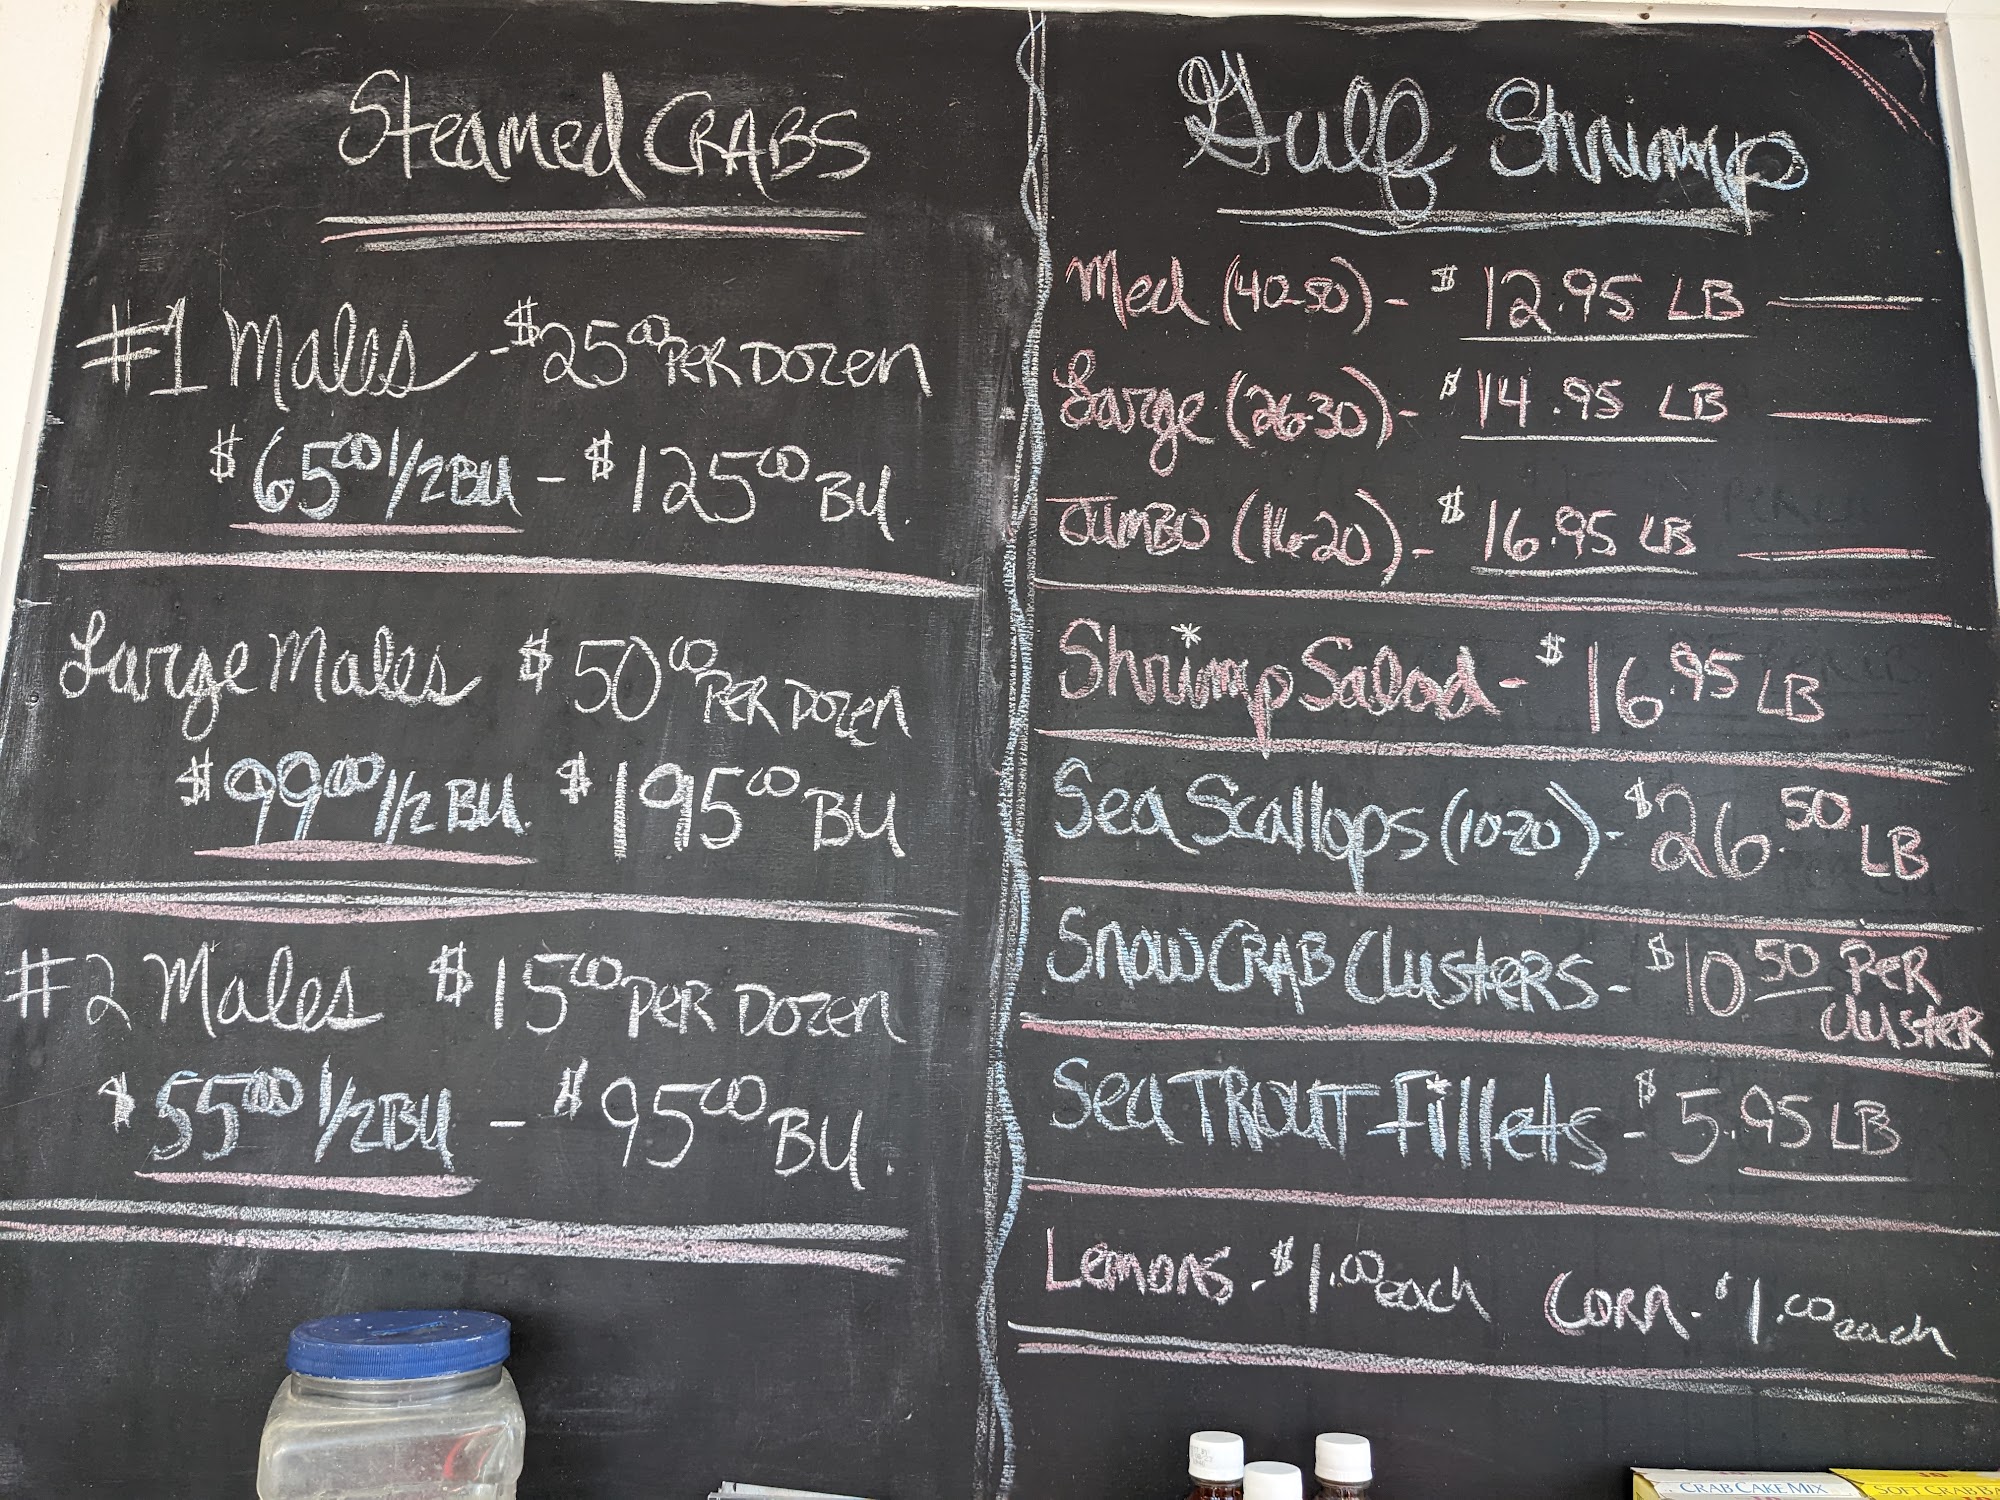 Steamed CRABS
#1 Males - $25.00 PER DOZEN
$65.00 1/2 BU - $125.00 BU.
Large Males $50.00 PER DOZEN
$99.00 1/2 BU. $195.00 BU
#2 Males $15.00 PER DOZEN
$55.00 1/2 BU - $95.00 BU.
Gulf Shrimp
Med (40-50) - $12.95 LB
Large (26-30) - $14.95 LB
JUMBO (16-20) - $16.95 LB
Shrimp Salad - $16.95 LB
Sea Scallops (10-20) - $26.50 LB
Snow CRAB Clusters - $10.50 PER Cluster
Sea TROUT Fillets - $5.95 LB
Lemons - $1.00 each Corn - $1.00 each
CRAB CAKE MIX
SOFT CRAB BA